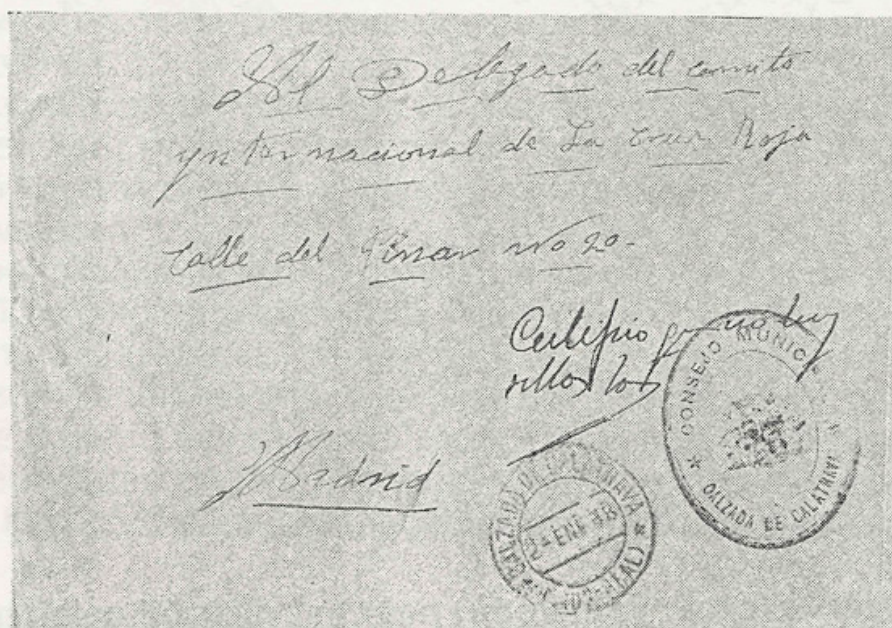 Al Delegado del comite
ynternacional de La Cruz Roja
Calle del Pinar no 20-
Certifico que no hay
sellos
CONSEJO MUNIC
CALZADA DE CALATRAVA
Madrid
CALZADA DE CALATRAVA
ENE 38
REAL)